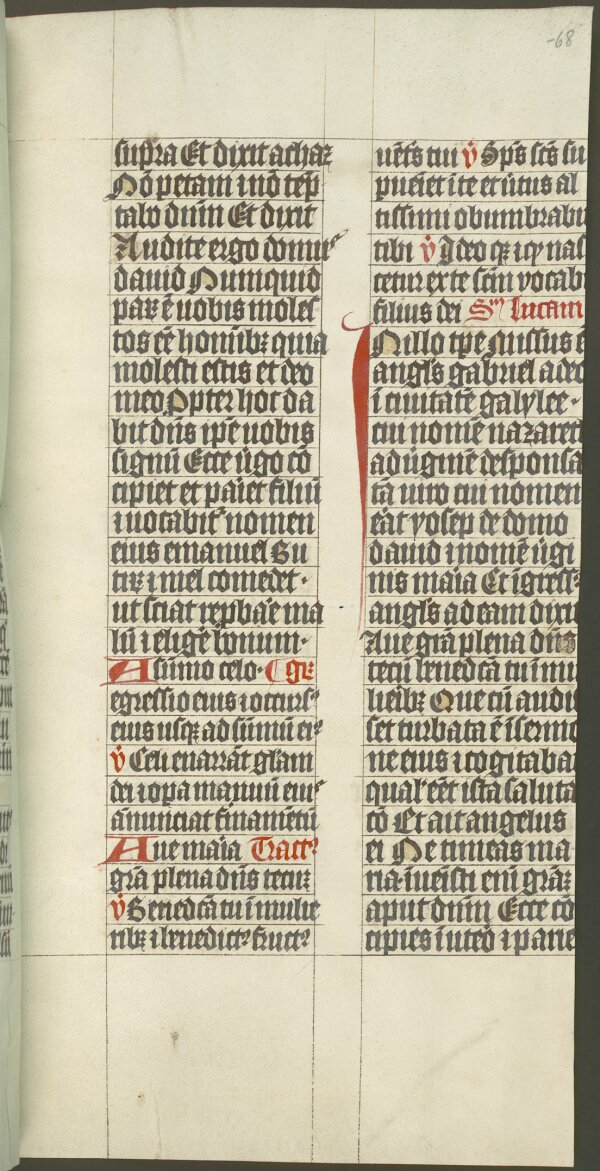 -68
supra Et dixit achaz
Nō petam ⁊ nō tēp
tabo dnm̄ Et dixit
Audite ergo domus
dauid Numquid
paꝝ ē uobis moles
tos eē hominibꝫ quia
molesti estis et deo
meo Propter hoc da
bit dn̄s ip̄e uobis
signū Ecce ūgo cō
cipiet et pariet filiū
⁊ uocabit᷑ nomen
eius emanuel Bu
tirū ⁊ mel comedet·
ut sciat rep̄baē ma
lū ⁊ eligē bonum·
A sūmo celo· Gr̄
egressio eius ⁊ occurs᷒
eius usqꝫ ad sūmū ei᷒
v̄ Celi enarrāt gl̄am
dei ⁊ opa manuū ei᷒
ānunciat firmamētū
Aue maīa Tract᷒
grā plena dn̄s tecū
v̄ Benedc̄a tu ī mulie
ribꝫ ⁊ benedict᷒ fruct᷒
uēt̄s tui v̄ Sp̄s sc̄s su
pueīet ī te et ūtus al
tissimi obumbrabi
tibi v̄ Ideo qꝫ
cetur ex te sc̄m vocab
filius dei Sm̄ lucam
In illo tp̄e missus ē
angl̄s gabriel a deo
ī ciuitatē galylee·
cui nomē nazareth
ad ūginē desponsa
tā uiro cui nomen
erāt yosep de domo
dauid ⁊ nomē ūgi
nis maīa Et īgress᷒
angl̄s ad eam dixit
Aue grā plena dn̄s
tecū benedc̄a tu ī mu
lieibꝫ Que cū audi
set turbata ē ī sermo
ne eius ⁊ cogitaba
qualꝭ eēt ista saluta
cō Et ait angelus
ei Ne timeas ma
ria· īuēisti enī grām
aput dnm̄ Ecce cō
cipies ī utēo ⁊ parie